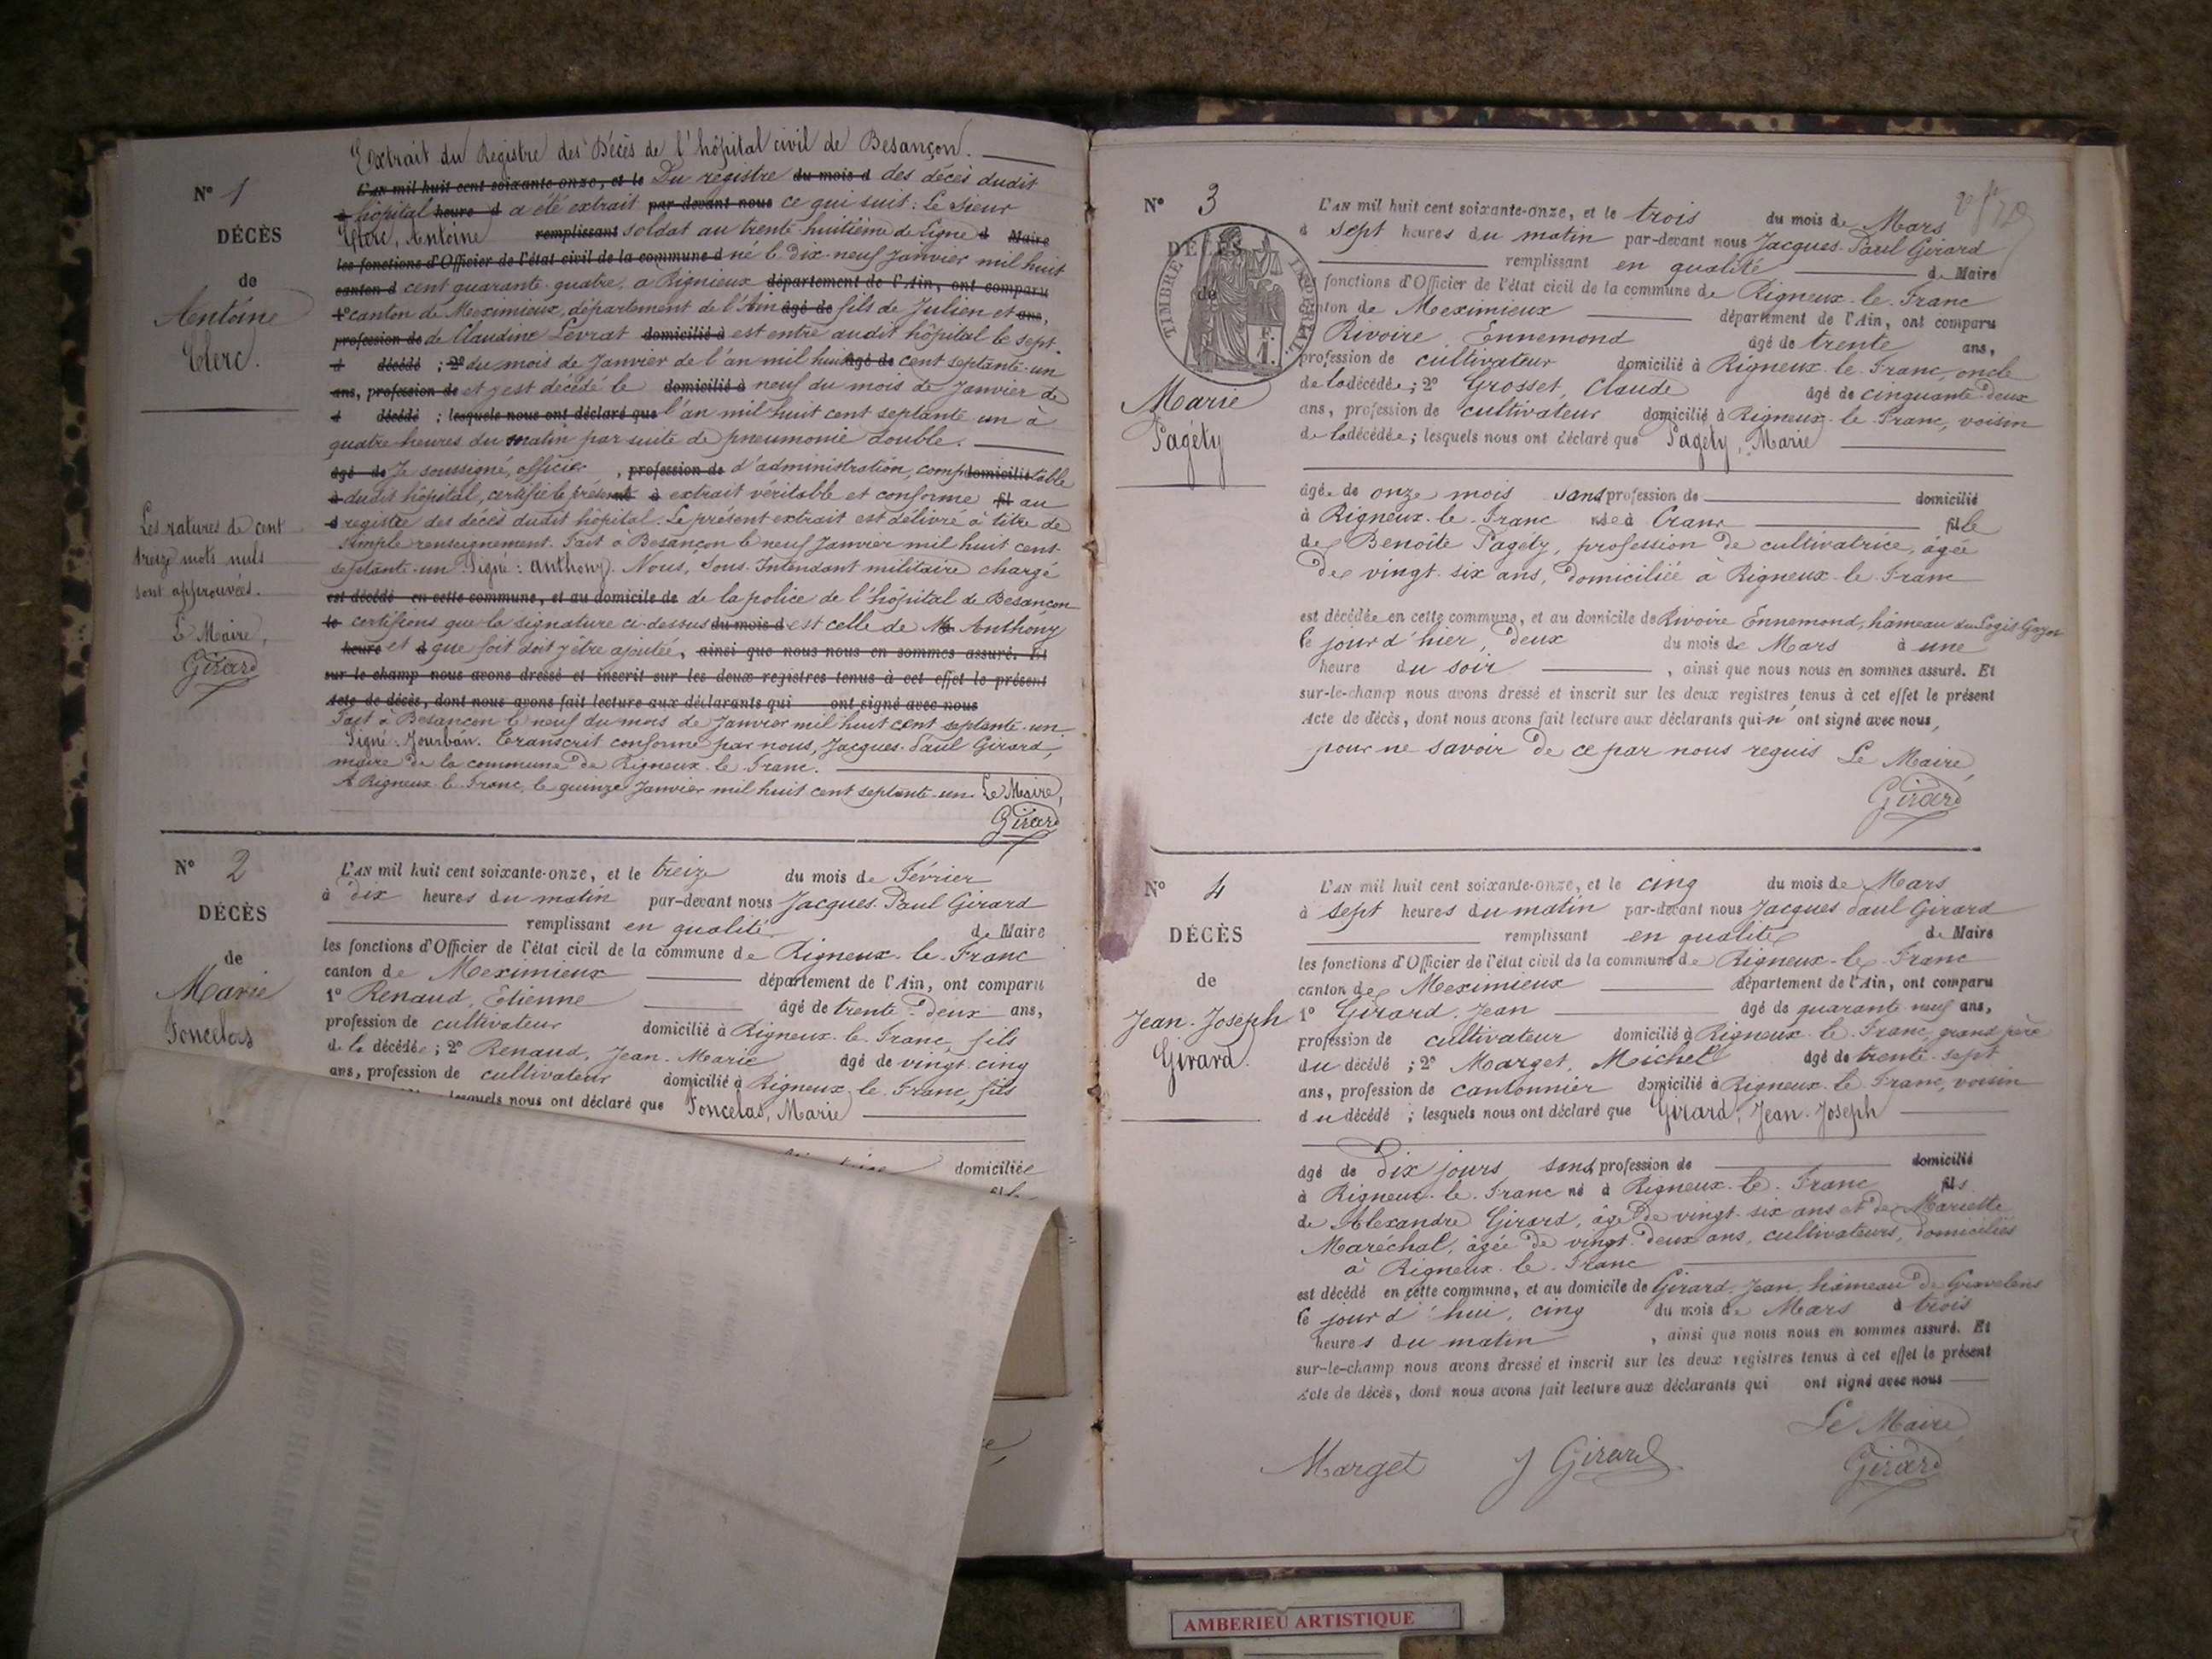 Extrait du Registre des Décès de l'hôpital civil de Besançon.
N° 1
DÉCÈS
de
Antoine
Clerc.
L'AN mil huit cent soixante-onze, et le Du registre du mois d des décès dudit
à hôpital heure d a été extrait par-devant nous ce qui suit : Le sieur
Clerc, Antoine remplissant soldat au trente huitième de Ligne d Maire
les fonctions d'Officier de l'état civil de la commune d né le dix-neuf Janvier mil huit
canton d cent quarante-quatre, à Rignieux département de l'Ain, ont comparu
1° canton de Meximieux, département de l'Ain âgé de fils de Julien et ans,
profession de de Claudine Levrat domicilié à est entré audit hôpital le sept
d décédé ; 2° du mois de Janvier de l'an mil huit âgé de cent septante-un
ans, profession de et y est décédé le domicilié à neuf du mois de Janvier de
d décédé ; lesquels nous ont déclaré que l'an mil huit cent septante un à
quatre heures du matin par suite de pneumonie double.
âgé de Je soussigné, officier, profession de d'administration, comp domicilié table
à dudit hôpital, certifie le présent à extrait véritable et conforme fil au
d registre des décès dudit hôpital. Le présent extrait est délivré à titre de
simple renseignement. Fait à Besançon le neuf Janvier mil huit cent
septante-un Signé : Anthony. Nous, Sous-Intendant militaire chargé
est décédé en cette commune, et au domicile de de la police de l'hôpital de Besançon
le certifions que la signature ci-dessus du mois d est celle de Mr Anthony
heure et à que foit doit y être ajoutée, ainsi que nous nous en sommes assuré. Et
sur-le-champ nous avons dressé et inscrit sur les deux registres tenus à cet effet le présent
Acte de décès, dont nous avons fait lecture aux déclarants qui ont signé avec nous
Fait à Besançon le neuf du mois de Janvier mil huit cent septante-un
Signé : Jourbán. Transcrit conforme par nous, Jacques-Paul Girard,
maire de la commune de Rigneux-le-Franc.
A Rigneux-le-Franc, le quinze Janvier mil huit cent septante-un. Le Maire,
Girard
Les ratures de cent
treize mots nuls
sont approuvées.
Le Maire,
Girard
N° 2
DÉCÈS
de
Marie
Poncelas
L'AN mil huit cent soixante-onze, et le treize du mois de Février
à dix heures du matin par-devant nous Jacques-Paul Girard
remplissant en qualité de Maire
les fonctions d'Officier de l'état civil de la commune de Rigneux-le-Franc
canton de Meximieux département de l'Ain, ont comparu
1° Renaud, Etienne âgé de trente-deux ans,
profession de cultivateur domicilié à Rigneux-le-Franc, fils
de la décédée ; 2° Renaud, Jean-Marie âgé de vingt-cinq
ans, profession de cultivateur domicilié à Rigneux-le-Franc, fils
lesquels nous ont déclaré que Poncelas, Marie
domiciliée
N° 3
DÉ
de
TIMBRE IMPÉRIAL
F.
1.
Marie
Pagéty
L'AN mil huit cent soixante-onze, et le trois du mois de Mars
à sept heures du matin par-devant nous Jacques-Paul Girard
remplissant en qualité de Maire
fonctions d'Officier de l'état civil de la commune de Rigneux-le-Franc
canton de Meximieux département de l'Ain, ont comparu
Rivoire, Ennemond âgé de trente ans,
profession de cultivateur domicilié à Rigneux-le-Franc, oncle
de la décédée ; 2° Grosset, Claude âgé de cinquante-deux
ans, profession de cultivateur domicilié à Rigneux-le-Franc, voisin
de la décédée ; lesquels nous ont déclaré que Pagéty, Marie
âgée de onze mois sans profession de domicilié
à Rigneux-le-Franc née à Crans fille
de Benoîte Pagéty, profession de cultivatrice, âgée
de vingt-six ans, domiciliée à Rigneux-le-Franc
est décédée en cette commune, et au domicile de Rivoire Ennemond, hameau du Logis
le jour d'hier, deux du mois de Mars à une
heure du soir , ainsi que nous nous en sommes assuré. Et
sur-le-champ nous avons dressé et inscrit sur les deux registres tenus à cet effet le présent
Acte de décès, dont nous avons fait lecture aux déclarants qui n'ont signé avec nous,
pour ne savoir de ce par nous requis Le Maire,
Girard
N° 4
DÉCÈS
de
Jean-Joseph
Girard.
L'AN mil huit cent soixante-onze, et le cinq du mois de Mars
à sept heures du matin par-devant nous Jacques Paul Girard
remplissant en qualité de Maire
les fonctions d'Officier de l'état civil de la commune de Rigneux-le-Franc
canton de Meximieux département de l'Ain, ont comparu
1° Girard, Jean âgé de quarante neuf ans,
profession de cultivateur domicilié à Rigneux-le-Franc, grand père
du décédé ; 2° Marget, Michel âgé de trente-sept
ans, profession de cantonnier domicilié à Rigneux-le-Franc, voisin
du décédé ; lesquels nous ont déclaré que Girard, Jean-Joseph
âgé de dix jours sans profession de domicilié
à Rigneux-le-Franc né à Rigneux-le-Franc fils
de Alexandre Girard, âgé de vingt-six ans et de Mariette
Maréchal, âgée de vingt-deux ans, cultivateurs, domiciliés
à Rigneux-le-Franc
est décédé en cette commune, et au domicile de Girard, Jean, hameau de Gravelens
le jour d'hui, cinq du mois de Mars à trois
heures du matin , ainsi que nous nous en sommes assuré. Et
sur-le-champ nous avons dressé et inscrit sur les deux registres tenus à cet effet le présent
Acte de décès, dont nous avons fait lecture aux déclarants qui ont signé avec nous
Le Maire,
Marget J Girard Girard
AMBERIEU ARTISTIQUE